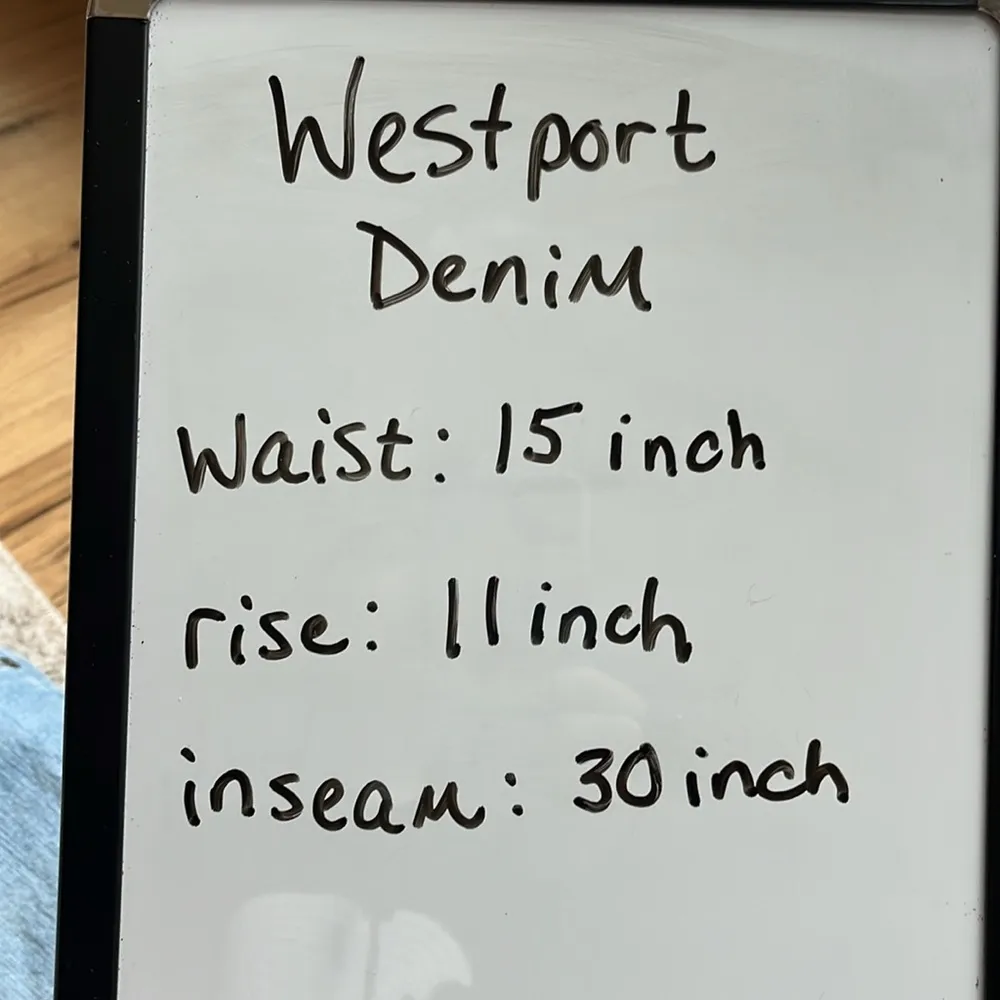 Westport
Denim
Waist: 15 inch
rise: 11 inch
inseam: 30 inch